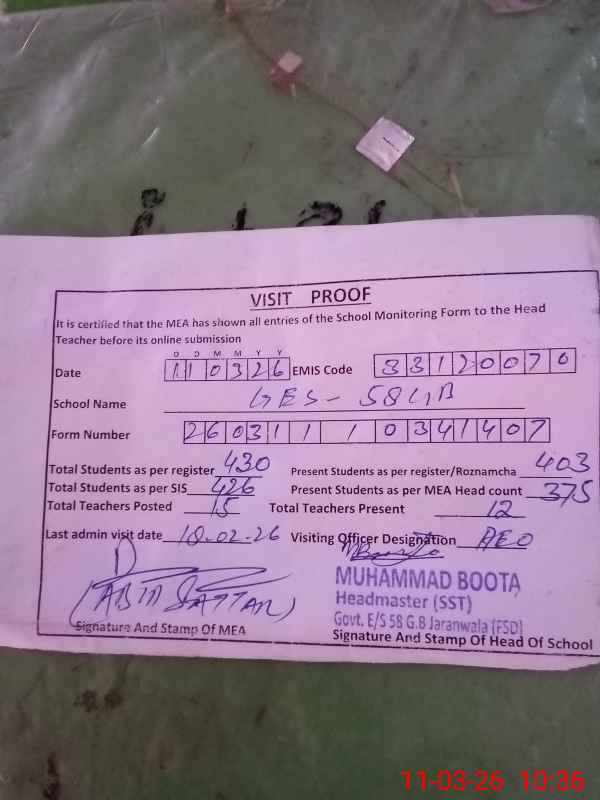 VISIT PROOF
It is certified that the MEA has shown all entries of the School Monitoring Form to the Head
Teacher before its online submission
D D M M Y Y
Date 110326 EMIS Code 33120070
School Name GES-58GB
Form Number 2603111 0341407
Total Students as per register 430 Present Students as per register/Roznamcha 403
Total Students as per SIS 426 Present Students as per MEA Head count 375
Total Teachers Posted 15 Total Teachers Present 12
Last admin visit date 10-02-26 Visiting Officer Designation AEO
MUHAMMAD BOOTA
Headmaster (SST)
Govt. E/S 58 G.B Jaranwala (FSD)
Signature And Stamp Of MEA Signature And Stamp Of Head Of School
11-03-26 10:36